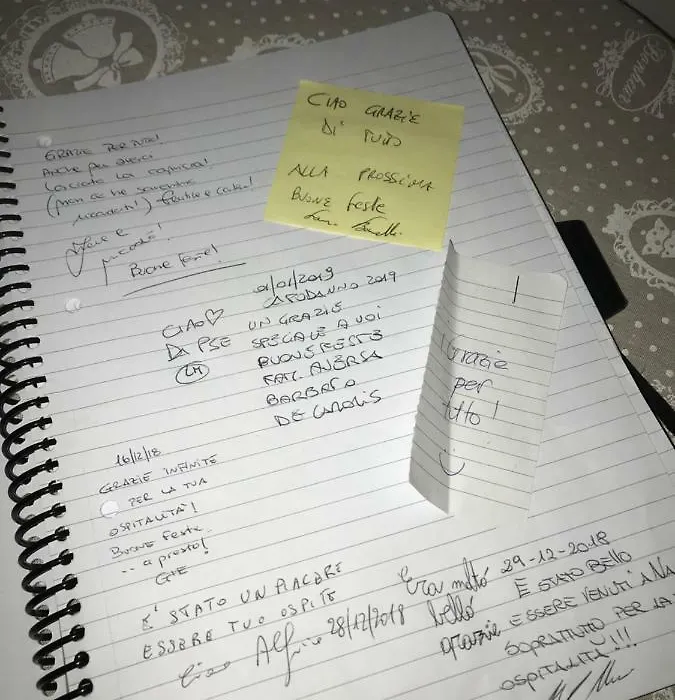 GRAZIE PER TUTTO!
Anche per averci
lasciato la
(non ce ne
Grazie e
Buone Feste!
CIAO GRAZIE
DI TUTTO
ALLA PROSSIMA
BUONE feste
01/01/2019
CAPODANNO 2019
CIAO♡ UN GRAZIE
SPECIALE A VOI
BUONE FESTE
FAM.
BARBARA
Grazie
per
tutto!
16/12/18
GRAZIE INFINITE
PER LA TUA
OSPITALITÀ!
Buone feste
.. a presto!
È STATO UN PIACERE
ESSERE TUO OSPITE
Ciao 28/12/2018
Era molto
bello
grazie
29-12-2018
E STATO BELLO
ESSERE VENUTI A NA
SOPRATUTTO PER LA
OSPITALITÀ!!!